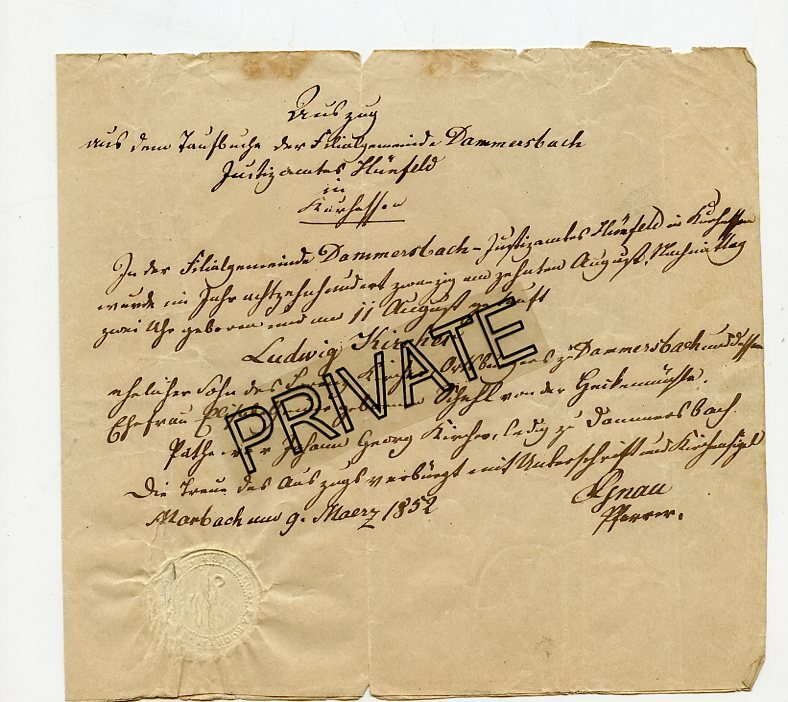 Auszug
aus dem Taufbuche der Filialgemeinde Dammersbach
Justizamtes Hünfeld
in
Kurhessen
In der Filialgemeinde Dammersbach - Justizamtes Hünfeld in Kurhessen
wurde im Jahr achtzehnhundert zwanzig am zehnten August, Nachmittag
zwei Uhr geboren und am 11 August getauft
Ludwig Kircher
ehelicher Sohn des Kircher Ortsbürgers zu Dammersbach und dessen
Ehefrau geborene Schehl von der Heckenmühle.
Pathe war Johann Georg Kircher, ledig zu Dammersbach.
Die Treue des Auszugs verbürgt mit Unterschrift und Kirchensigel
Marbach am 9. Maerz 1852
Pfarrer.
PRIVATE